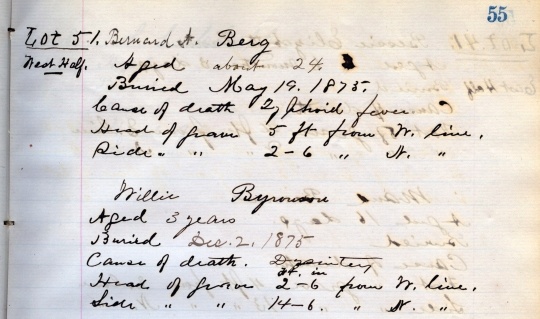 55
Lot 51. Bernard A. Berg
West Half. Aged about 24.
Buried May 19. 1875.
Cause of death Typhoid fever ?
Head of grave 5 ft from W. line,
Side " " 2-6 " N. "
Willie Byrowson
Aged 3 years
Buried Dec. 2, 1875
Cause of death. Dysintery
ft. in
Head of grave 2-6 from W. line,
Side " " 14-6 " N. "